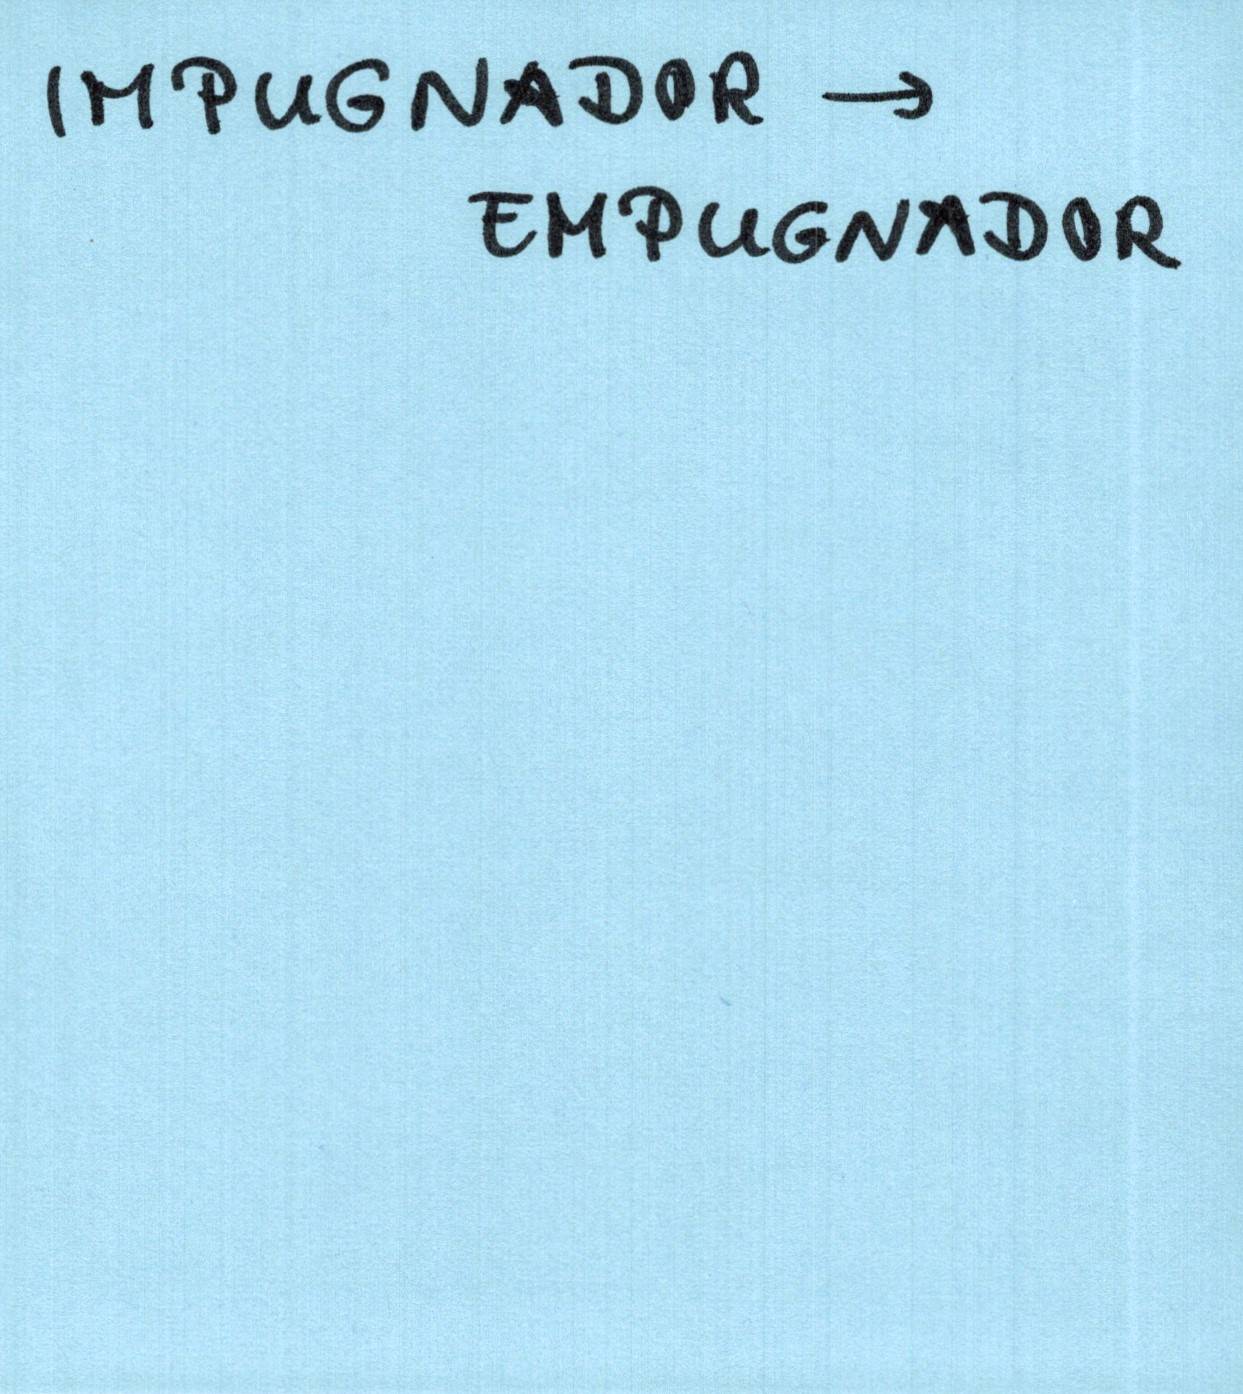 IMPUGNADOR →
EMPUGNADOR